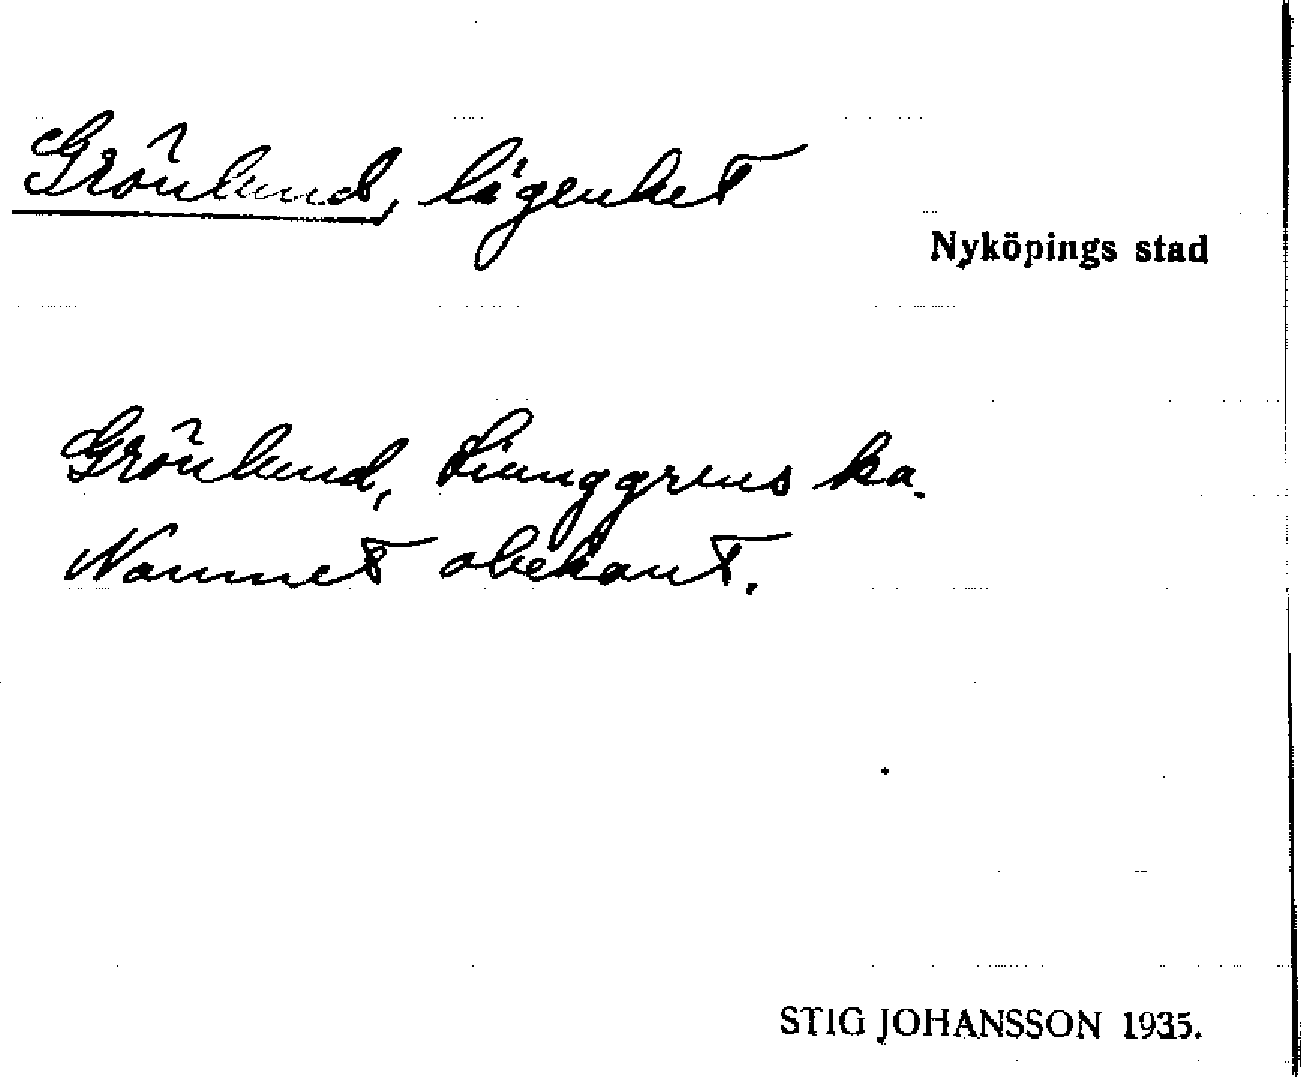 Grönlund, lägenhet
Nyköpings stad
Grönlund, Liunggrens ka.
Namnet obekant.
STIG JOHANSSON 1935.